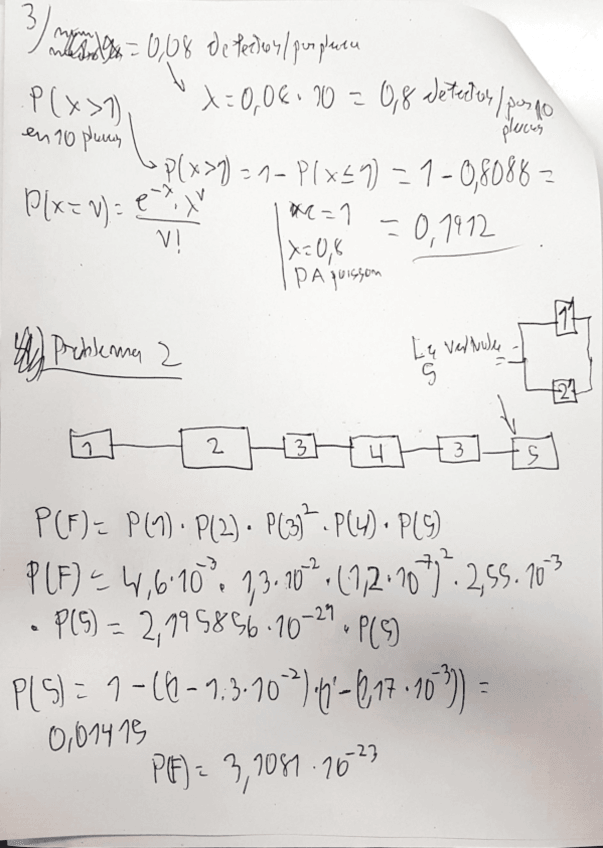 3/ = 0,08 defectos/por placa
P(x>1) λ=0,08·10 = 0,8 defectos/por 10 placas
en 10 placas
P(x>1) = 1 - P(x≤1) = 1 - 0,8088 =
P(x=v) = e^-λ · λ^v / v!
x=1 = 0,1912
λ=0,8
Problema 2
La valvula 5 =
1'
2'
1 2 3 4 3 5
P(F) = P(1) · P(2) · P(3)² · P(4) · P(5)
P(F) = 4,6·10^-3 · 1,3·10^-2 · (1,2·10^-7)² · 2,55·10^-3
· P(5) = 2,195856·10^-21 · P(5)
P(5) = 1-((1-1.3·10^-2)·(1-(1,17·10^-3)) =
0,01415
P(F) = 3,1081·10^-23